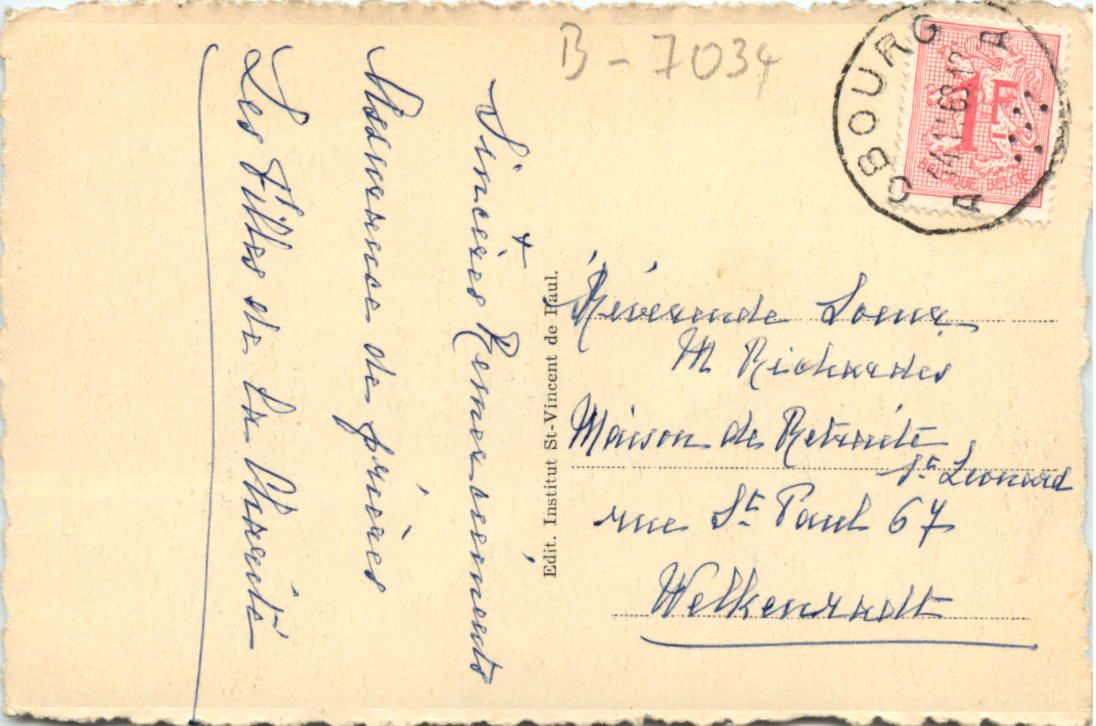 B - 7034
+
Sincères Remerciements
Assurance de prières
Les Filles de la Charité
Edit. Institut St-Vincent de Paul.
OBOURG
A A
1F
BELGIQUE BELGIË
Révérende Soeur
M Richardes
Maison de Retraite
St Léonard
rue St Paul 67
Welkenradt